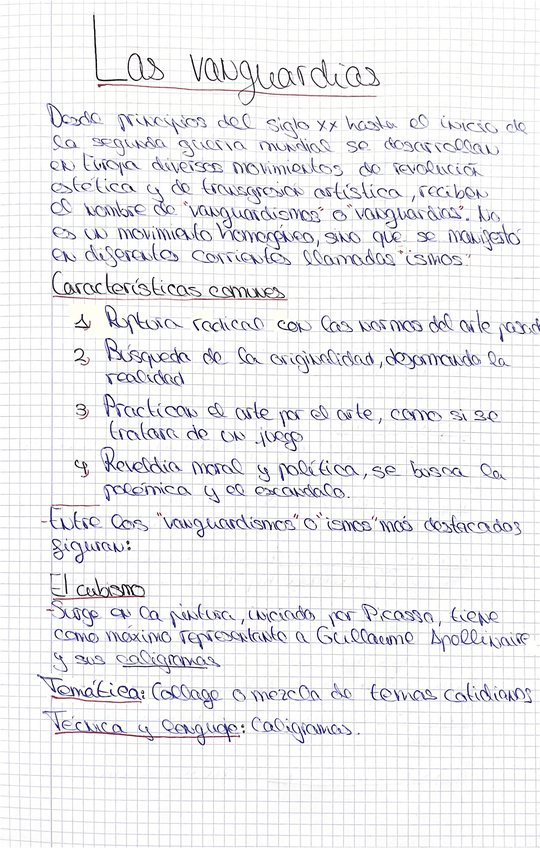 Las vanguardias
Desde principios del siglo xx hasta el inicio de
la segunda guerra mundial se desarrollan
en Europa diversos movimientos de revolución
estética y de transgresión artística, reciben
el nombre de "vanguardismos" o "vanguardias". No
es un movimiento homogéneo, sino que se manifestó
en diferentes corrientes llamadas "ismos"
Características comunes
1 Ruptura radical con las normas del arte pasad
2 Búsqueda de la originalidad, desarmando la
realidad
3 Practican el arte por el arte, como si se
tratara de un juego
4 Reveldia moral y política, se busca la
polémica y el escándalo.
-Entre los "vanguardismos" o "ismos" más destacados
figuran:
El cubismo
-Surge en la pintura, iniciado por Picasso, tiene
como máximo representante a Guillaume Apollinaire
y sus caligramas
Temática: Collage o mezcla de temas cotidianos
Técnica y lenguaje: Caligramas.